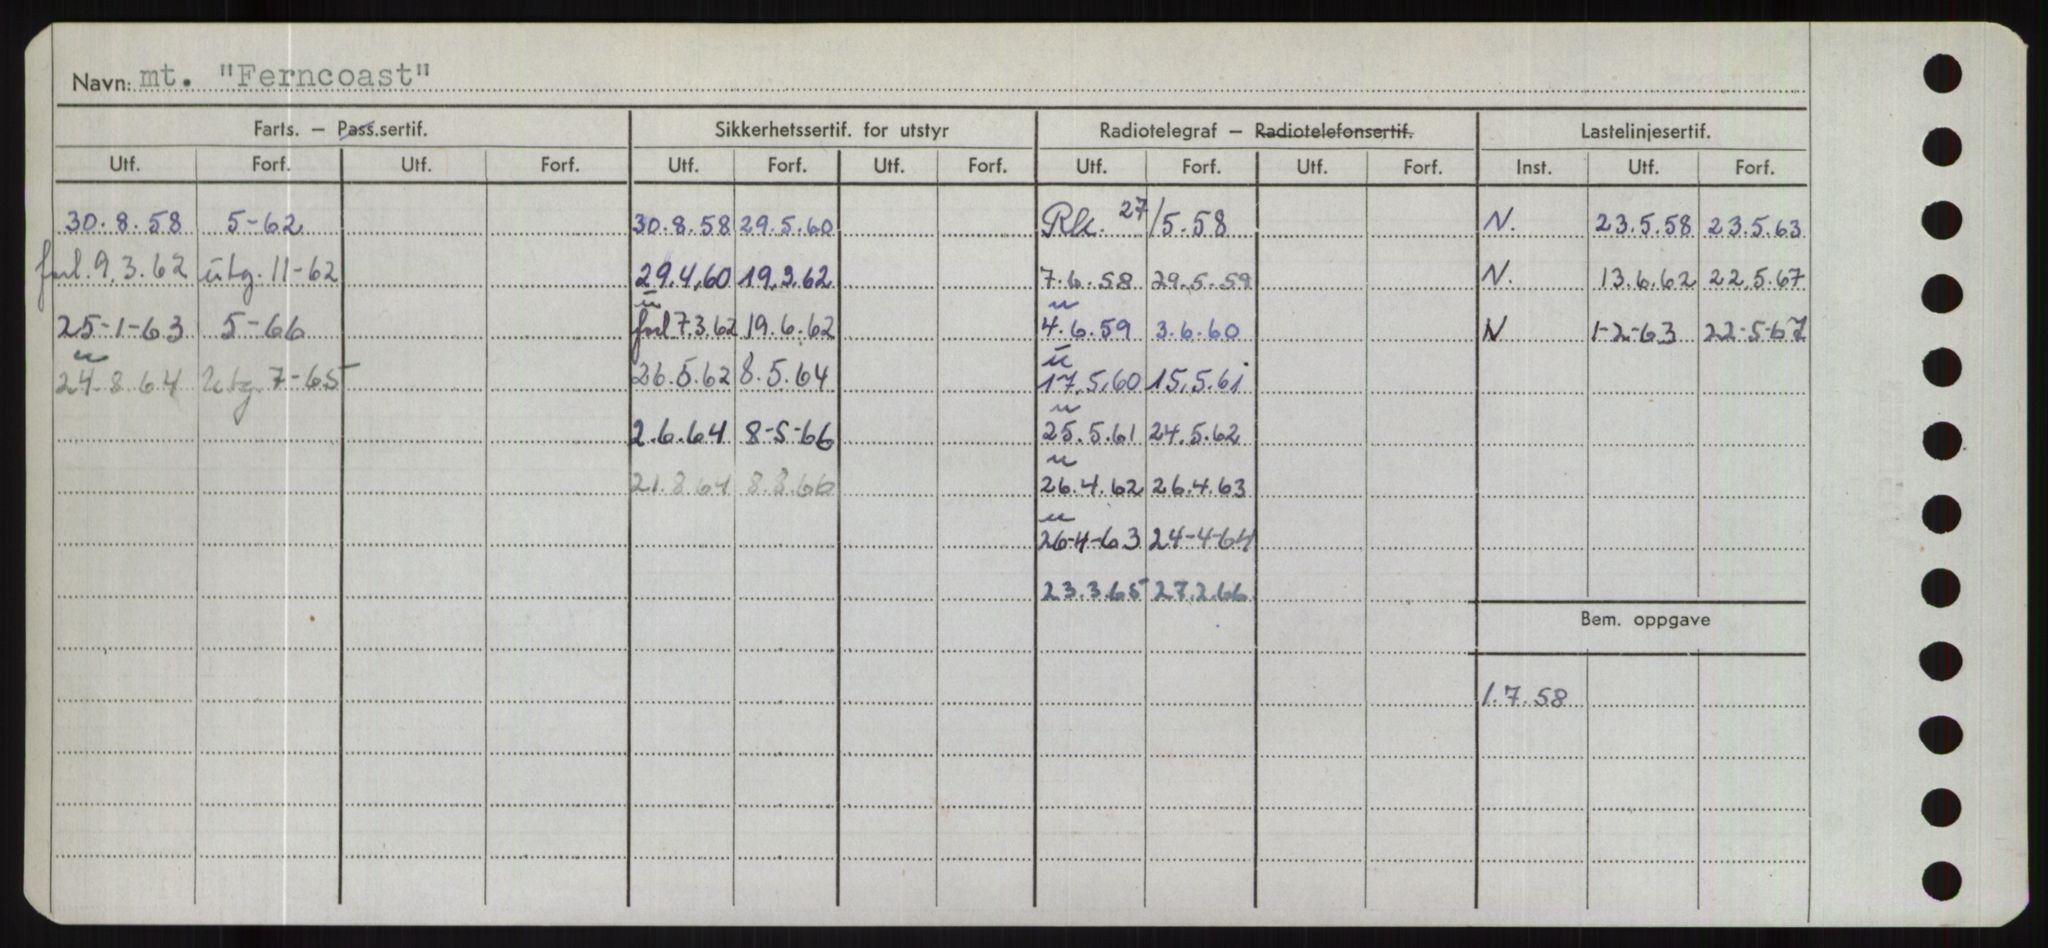 Navn: mt. "Ferncoast"
Farts. – Pass.sertif. Sikkerhetssertif. for utstyr Radiotelegraf – Radiotelefonsertif. Lastelinjesertif.
Utf. Forf. Utf. Forf. Utf. Forf. Utf. Forf. Utf. Forf. Utf. Forf. Inst. Utf. Forf.
30.8.58 5-62 30.8.58 29.5.60 Rk. 27/5.58 N. 23.5.58 23.5.63
forl. 9.3.62 utg. 11-62 29.4.60 19.3.62 7.6.58 29.5.59 N. 13.6.62 22.5.67
25-1-63 5-66 forl 7.3.62 19.6.62 4.6.59 3.6.60 N 1-2-63 22-5-67
24.8.64 Utg. 7-65 26.5.62 8.5.64 17.5.60 15.5.61
2.6.64 8-5-66 25.5.61 24.5.62
21.8.64 8.8.66 26.4.62 26.4.63
26-4-63 24-4-64
23.3.65 27.2.66
Bem. oppgave
1.7.58